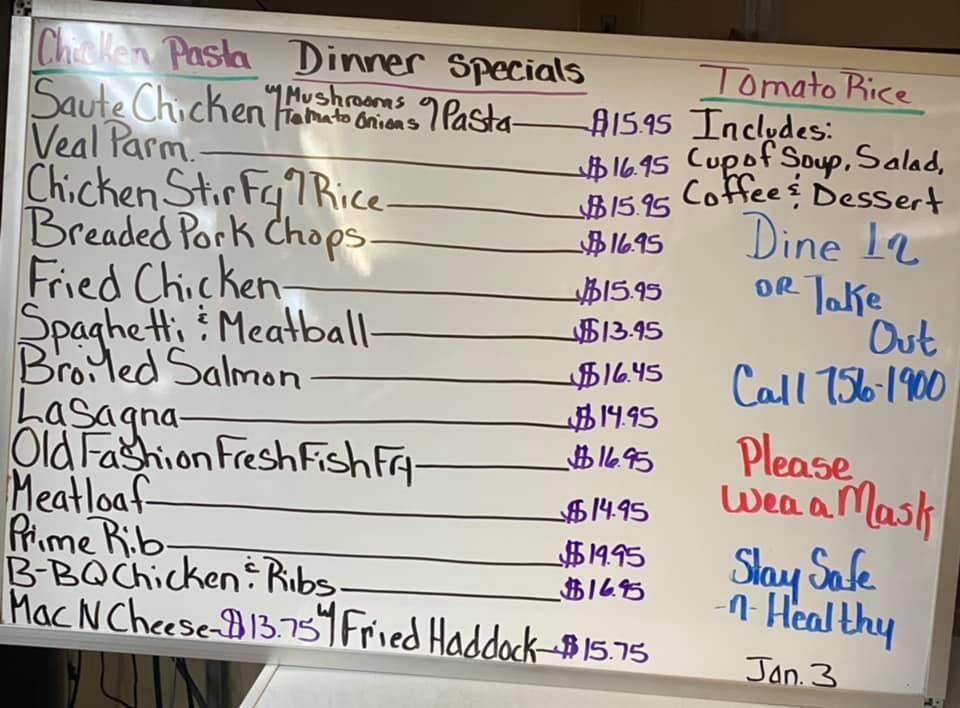 Chicken Pasta Dinner Specials
Saute Chicken w/ Mushrooms Tomato Onions 7 Pasta $15.95
Veal Parm. $16.95
Chicken Stir Fry 7 Rice $15.95
Breaded Pork Chops $16.95
Fried Chicken $15.95
Spaghetti & Meatball $13.95
Broiled Salmon $16.45
LaSagna $14.95
Old Fashion Fresh Fish Fry $16.95
Meatloaf $14.95
Prime Rib $19.95
B-BQ Chicken & Ribs $16.95
Mac N Cheese - $13.75 w/ Fried Haddock - $15.75
Tomato Rice
Includes:
Cup of Soup, Salad,
Coffee & Dessert
Dine In
OR Take
Out
Call 756-1900
Please
Wea a Mask
Stay Safe
-n- Healthy
Jan. 3